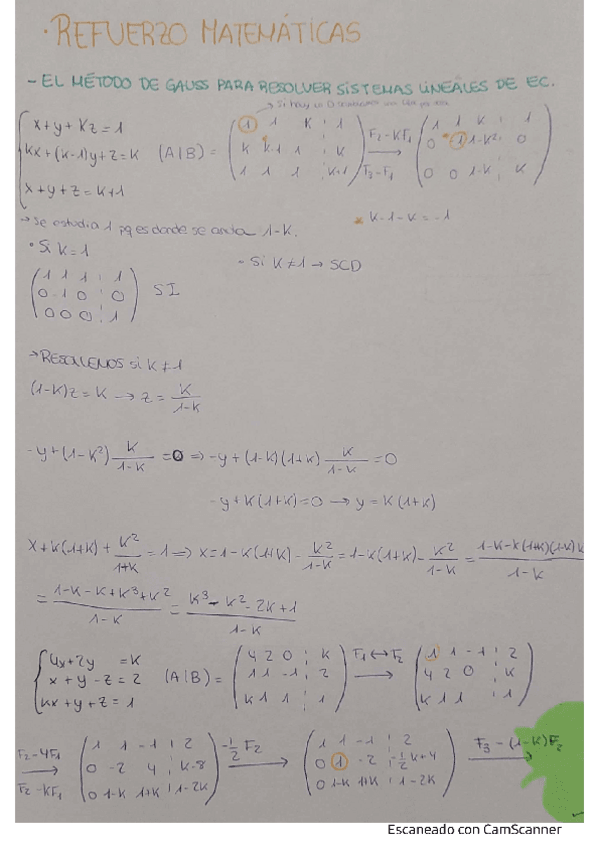 · REFUERZO MATEMÁTICAS
- EL MÉTODO DE GAUSS PARA RESOLVER SISTEMAS LINEALES DE EC.
→ Si hay un
x+y+kz=1
kx+(k-1)y+z=k
x+y+z=k+1
(A|B) =
1 1 k | 1
k k-1 1 | k
1 1 1 | k+1
F2-kF1
F3-F1
→
1 1 k | 1
0 -1 1-k² | 0
0 0 1-k | k
→ Se estudia 1 pq es donde se anula 1-k.
* k-1-k=-1
· Si k=1
- Si k≠1 → SCD
1 1 1 | 1
0 -1 0 | 0
0 0 0 | 1
SI
→ RESOLVEMOS si k≠1
(1-k)z=k → z= k/1-k
-y+(1-k²) k/1-k =0 ⇒ -y+(1-k)(1+k) k/1-k =0
-y+k(1+k)=0 → y=k(1+k)
x+k(1+k)+ k²/1+k =1 ⇒ x=1-k(1+k)- k²/1-k =1-k(1+k)- k²/1-k = 1-k-k(1+k)(1-k)k/1-k
= 1-k-k+k³+k²/1-k = k³-k²-2k+1/1-k
4x+2y =k
x+y-z=2
kx+y+z=1
(A|B) =
4 2 0 | k
1 1 -1 | 2
k 1 1 | 1
F1↔F2
→
1 1 -1 | 2
4 2 0 | k
k 1 1 | 1
F2-4F1
F2-kF1
→
1 1 -1 | 2
0 -2 4 | k-8
0 1-k 1+k | 1-2k
-1/2 F2
→
1 1 -1 | 2
0 1 -2 | -1/2k+4
0 1-k 1+k | 1-2k
F3-(1-k)F2
→
Escaneado con CamScanner